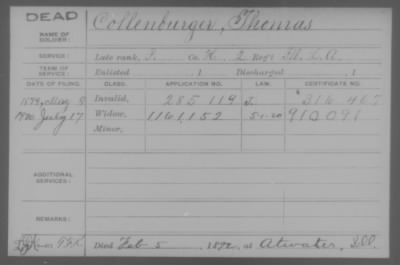 DEAD
NAME OF SOLDIER: Collenburger, Thomas
SERVICE: Late rank, P. Co. K. 2 Reg't Ill. L. A.
TERM OF SERVICE: Enlisted , 1 Discharged , 1
DATE OF FILING. CLASS. APPLICATION NO. LAW. CERTIFICATE NO.
1879 May 8 Invalid, 285 119 316 467
1920 July 17 Widow, 1161152 910098
Minor,
ADDITIONAL SERVICES:
REMARKS:
Died Feb 5 , 1892, at Atwater, Ill.